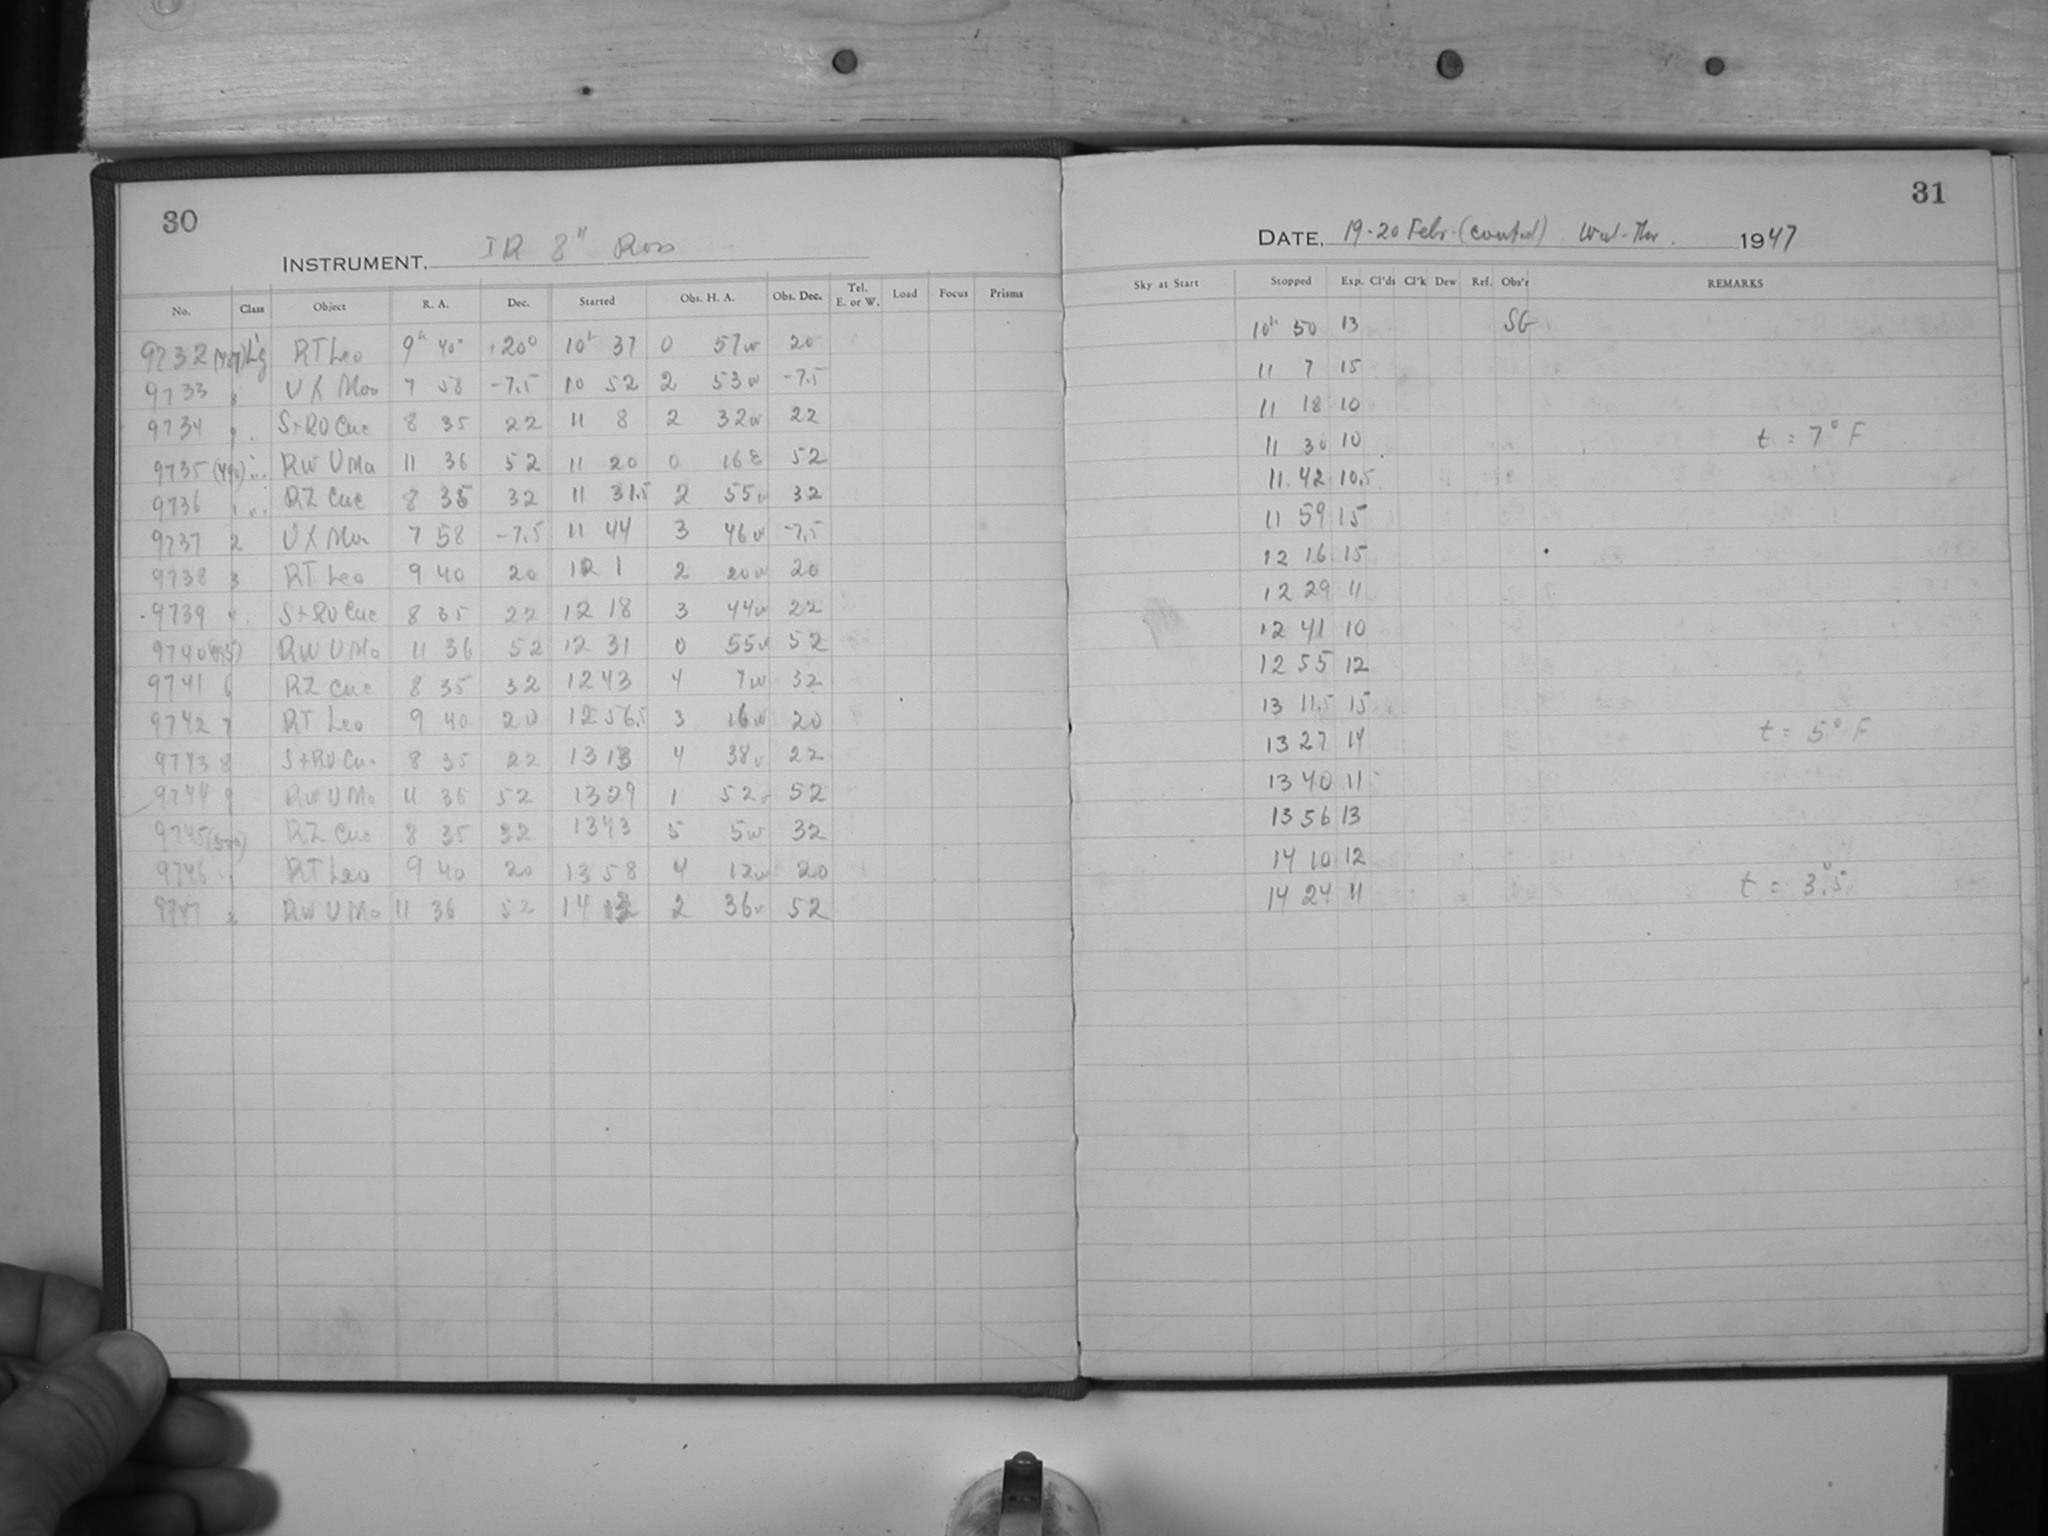 30
INSTRUMENT, IR 8" Ross
No. Class Object R. A. Dec. Started Obs. H. A. Obs. Dec. Tel. E. or W. Load Focus Prisms
9732 RT Leo 9h 40 +20° 10h 37 0 57w 20
9733 UX Mon 7 58 -7.5 10 52 2 53w -7.5
9734 S+RU Cnc 8 35 22 11 8 2 32w 22
9735 RW UMa 11 36 52 11 20 0 16E 52
9736 RZ Cnc 8 35 32 11 31.5 2 55w 32
9737 2 UX Mon 7 58 -7.5 11 44 3 46w -7.5
9738 3 RT Leo 9 40 20 12 1 2 20w 20
9739 4 S+RU Cnc 8 35 22 12 18 3 44w 22
9740 RW UMa 11 36 52 12 31 0 55w 52
9741 6 RZ Cnc 8 35 32 12 43 4 7w 32
9742 7 RT Leo 9 40 20 12 56.5 3 16w 20
9743 8 S+RU Cnc 8 35 22 13 13 4 38w 22
9744 9 RW UMa 11 36 52 13 29 1 52w 52
9745 RZ Cnc 8 35 32 13 43 5 5w 32
9746 RT Leo 9 40 20 13 58 4 12w 20
9747 2 RW UMa 11 36 52 14 2 36w 52
31
DATE, 19-20 Febr. (contd) Wed-Thr. 1947
Sky at Start Stopped Exp. Cl'ds Cl'k Dew Ref. Obs'r REMARKS
10h 50 13 SG
11 7 15
11 18 10
11 30 10 t = 7° F
11 42 10.5
11 59 15
12 16 15
12 29 11
12 41 10
12 55 12
13 11.5 15
13 27 14 t = 5° F
13 40 11
13 56 13
14 10 12
14 24 11 t = 3°.5